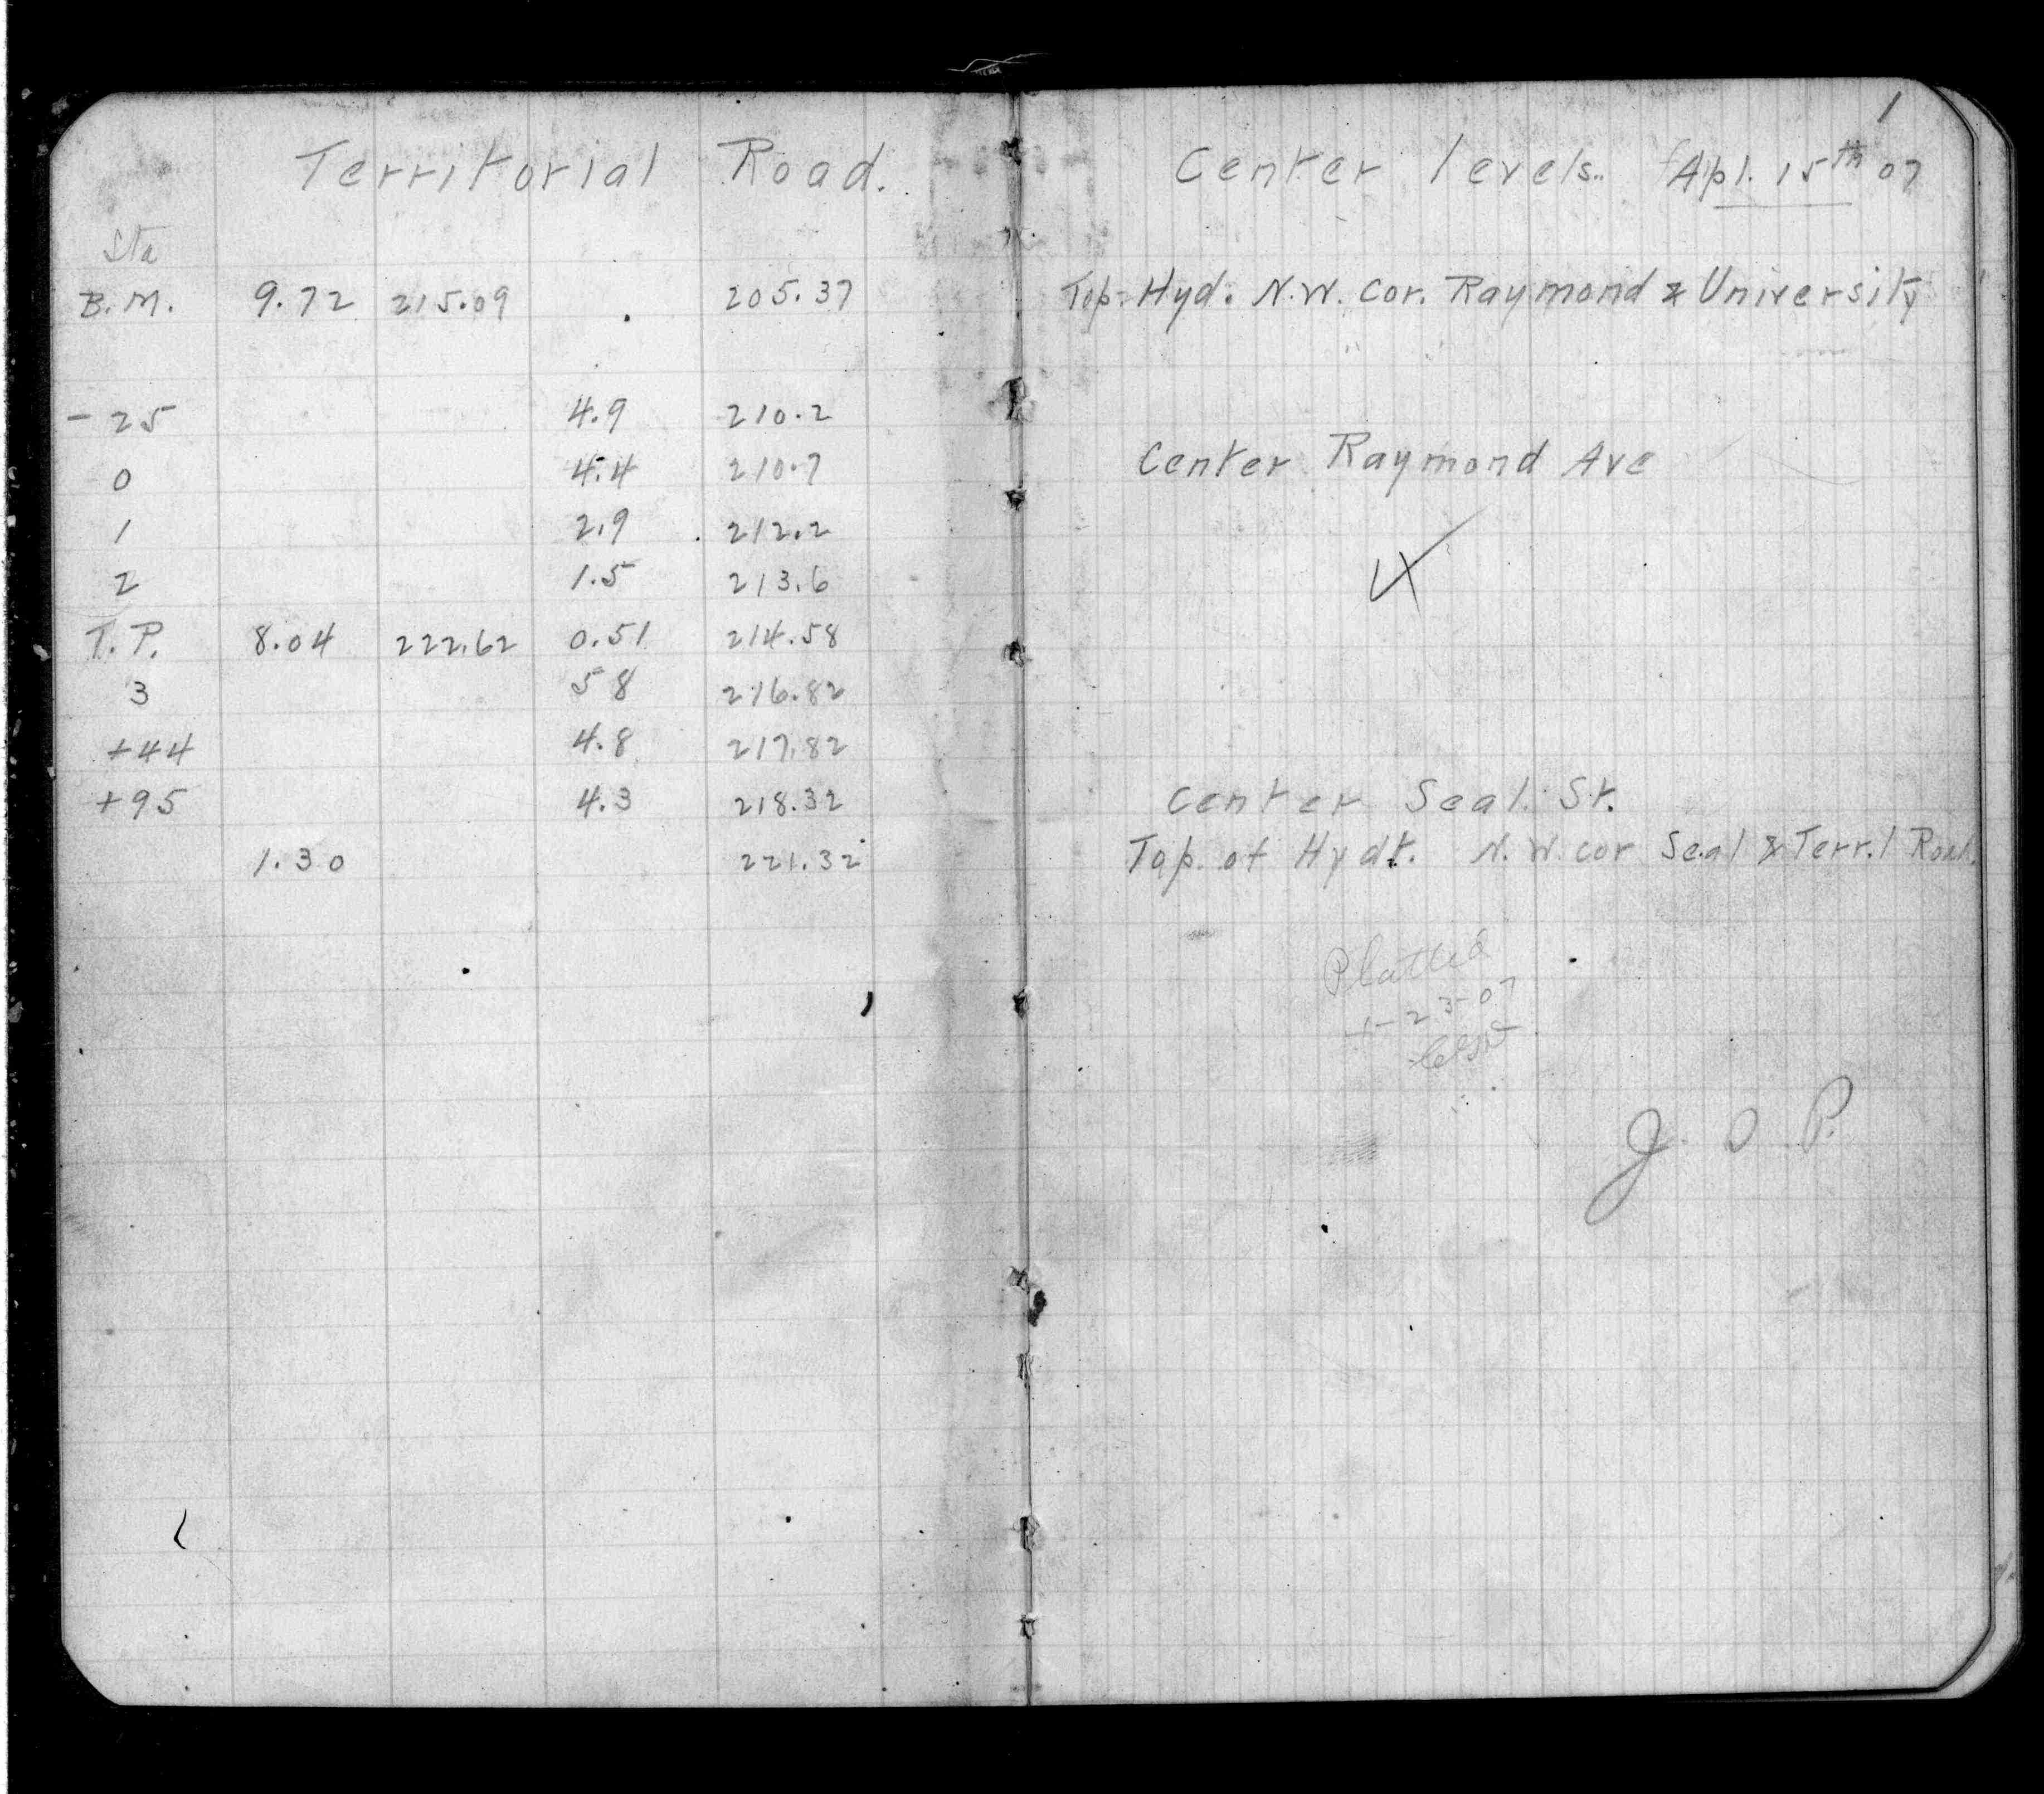 Territorial Road.
Sta
B.M. 9.72 215.09 205.37
-25 4.9 210.2
0 4.4 210.7
1 2.9 212.2
2 1.5 213.6
T.P. 8.04 222.62 0.51 214.58
3 5 8 216.82
+44 4.8 217.82
+95 4.3 218.32
1.30 221.32
1
Center levels. Apl. 15th 07
Top. Hyd. N.W. Cor. Raymond & University
Center Raymond Ave
Center Seal St.
Top. of Hydt. N.W. cor Seal & Terr.l Road.
Platted
23-07
J. O. P.